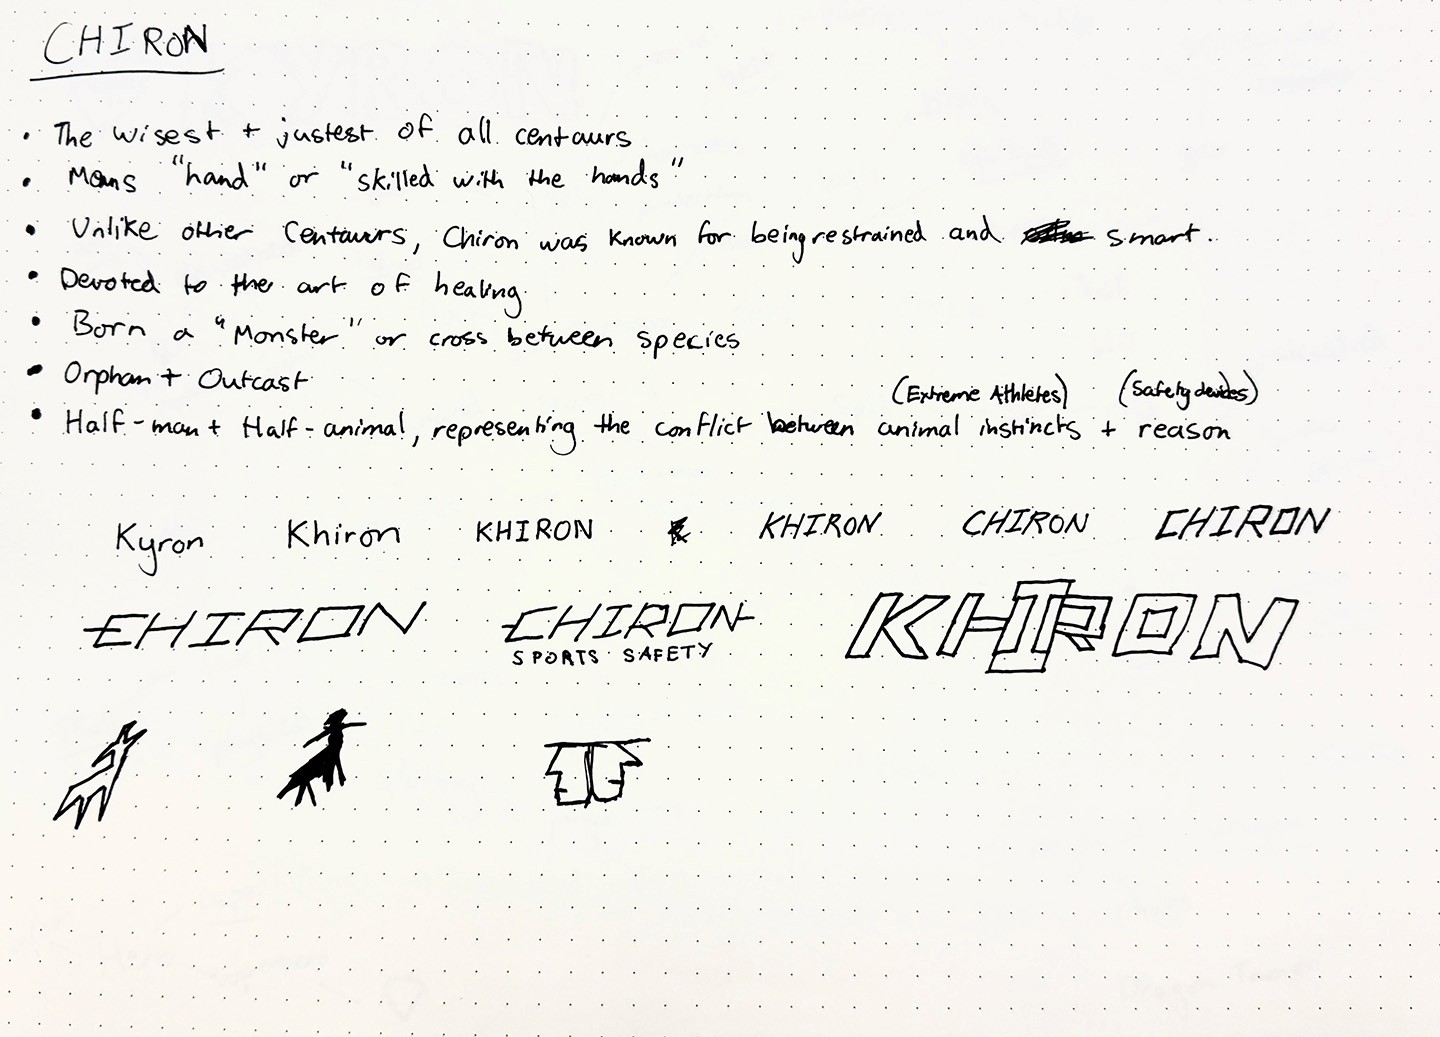 CHIRON
• The wisest + justest of all centaurs
• Means "hand" or "skilled with the hands"
• Unlike other Centaurs, Chiron was known for being restrained and smart.
• Devoted to the art of healing
• Born a "Monster" or cross between species
• Orphan + Outcast
(Extreme Athletes) (Safety devices)
• Half-man + Half-animal, representing the conflict between animal instincts + reason
Kyron Khiron KHIRON KHIRON CHIRON CHIRON
CHIRON CHIRON KHIRON
SPORTS SAFETY